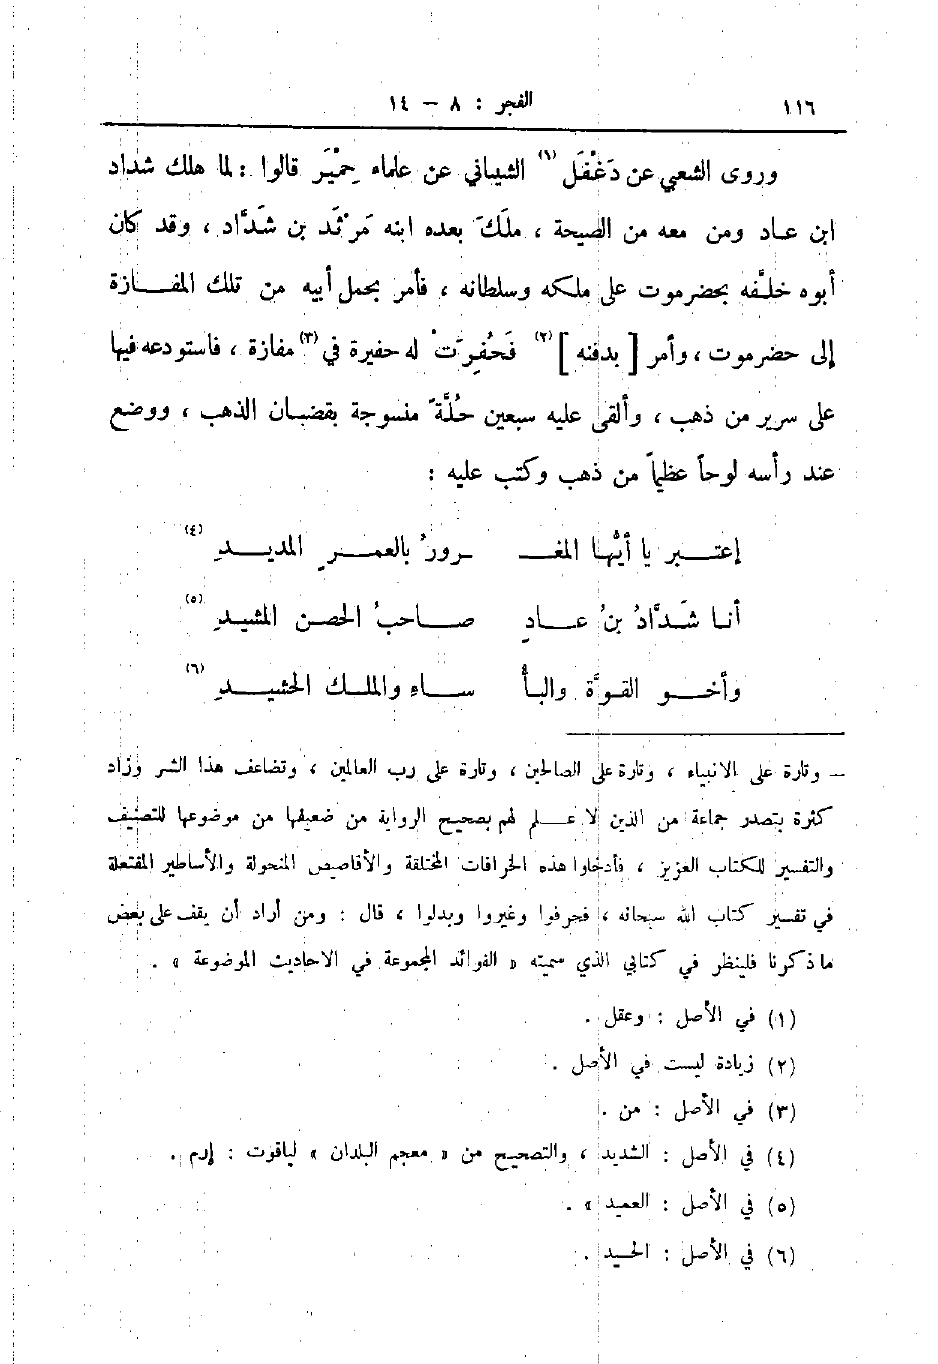 ١١٦ الفجر : ٨ – ١٤
وروى الشعبي عن دَغْفَل (١) الشيباني عن علماء حِمْيَر قالوا : لما هلك شداد
ابن عاد ومن معه من الصيحة ، ملَكَ بعده ابنه مَرْثَد بن شَدَّاد ، وقد كان
أبوه خلَّفه بحضرموت على ملكه وسلطانه ، فأمر بحمل أبيه من تلك المفازة
إلى حضرموت ، وأمر [ بدفنه ] (٢) فَحُفِرَتْ له حفيرة في (٣) مفازة ، فاستودعه فيها
على سرير من ذهب ، وألقى عليه سبعين حُلَّةً منسوجة بقضبان الذهب ، ووضع
عند رأسه لوحاً عظيماً من ذهب وكتب عليه :
إعتبر يا أيُّها المغـ ـرورُ بالعمرِ المديدِ (٤)
أنا شَدَّادُ بنُ عادٍ صاحبُ الحصن المشيدِ (٥)
وأخو القوَّة والبأ ساءِ والملك الحشيدِ (٦)
– وتارة على الانبياء ، وتارة على الصالحين ، وتارة على رب العالمين ، وتضاعف هذا الشر وزاد
كثرة بتصدر جماعة من الذين لا علم لهم بصحيح الرواية من ضعيفها من موضوعها للتصنيف
والتفسير للكتاب العزيز ، فأدخلوا هذه الخرافات المختلقة والأقاصيص المنحولة والأساطير المفتعلة
في تفسير كتاب الله سبحانه ، فحرفوا وغيروا وبدلوا ، قال : ومن أراد أن يقف على بعض
ما ذكرنا فلينظر في كتابي الذي سميته « الفوائد المجموعة في الاحاديث الموضوعة » .
(١) في الأصل : وعقل .
(٢) زيادة ليست في الأصل .
(٣) في الأصل : من .
(٤) في الأصل : الشديد ، والتصحيح من « معجم البلدان » لياقوت : إرم .
(٥) في الأصل : العميد » .
(٦) في الأصل : الحيد .